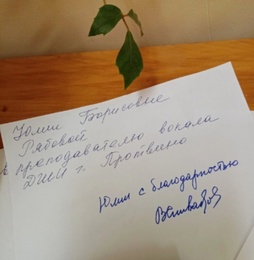 Юлии Борисовне
Рябовой
преподавателю вокала
ДШИ г. Протвино
Юлии с благодарностью